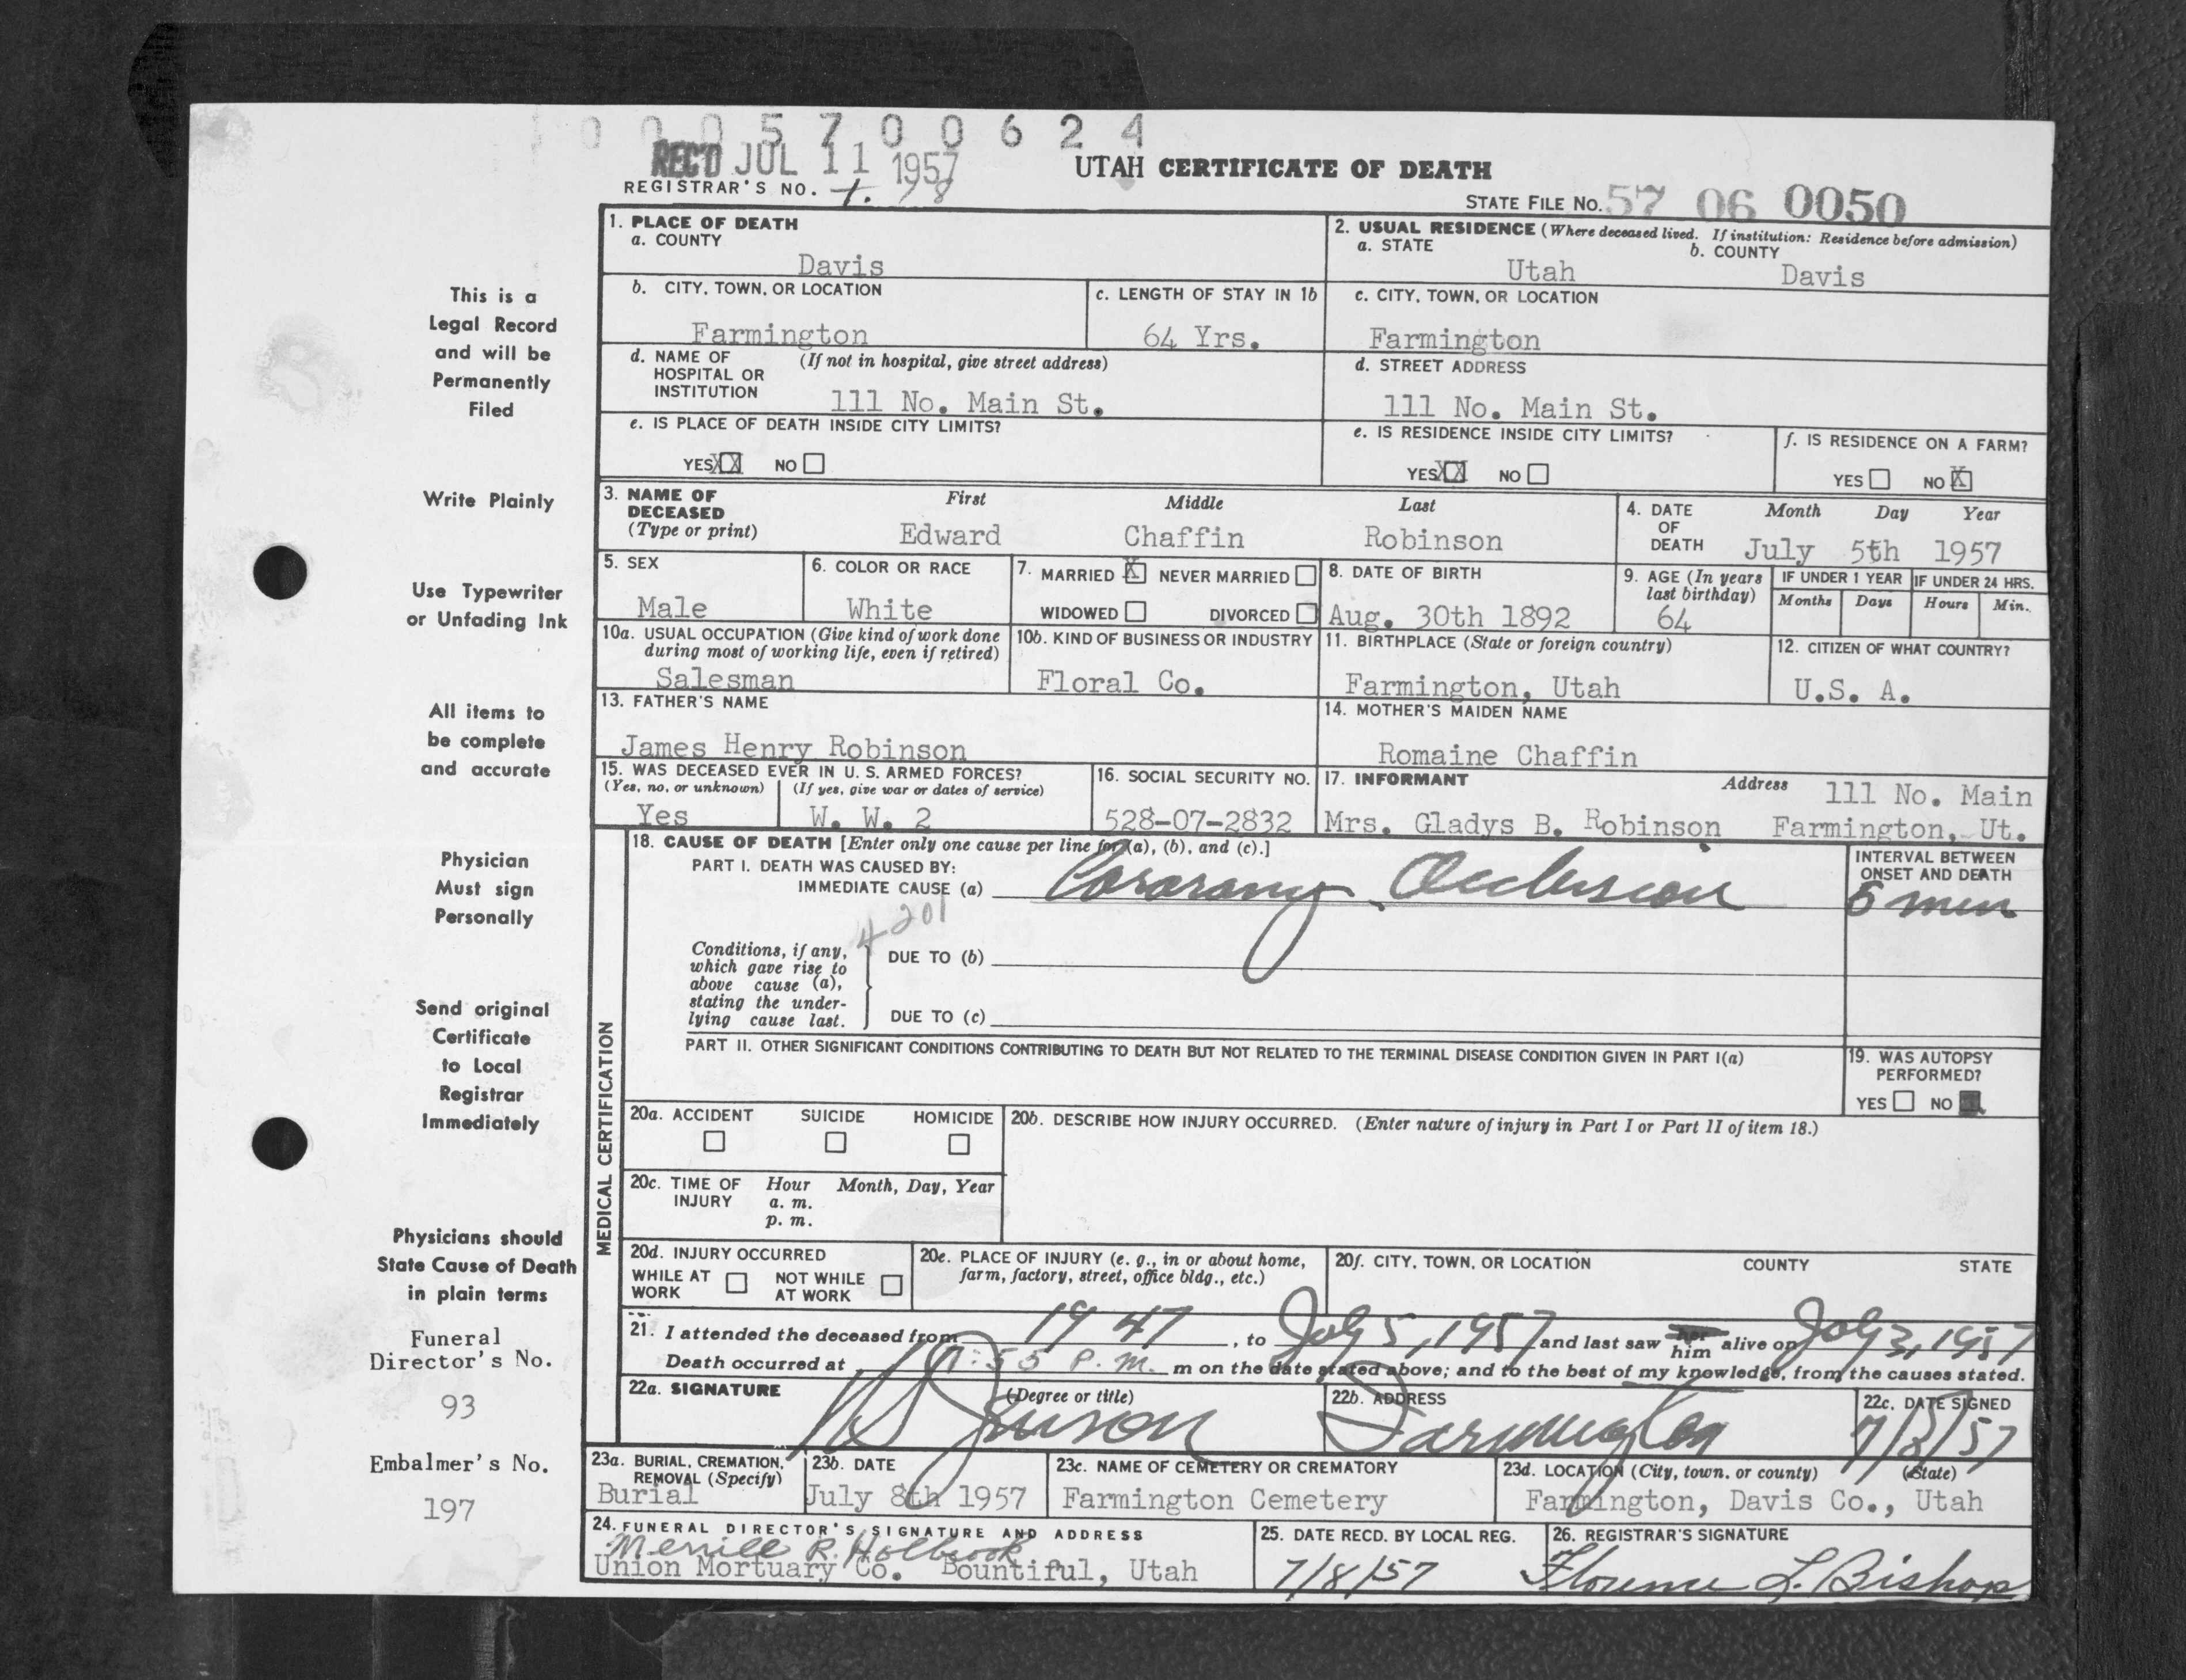 0 0 0 5 7 0 0 6 2 4
REC'D JUL 11 1957
UTAH CERTIFICATE OF DEATH
REGISTRAR'S NO.
STATE FILE NO. 57 06 0050
This is a
Legal Record
and will be
Permanently
Filed
Write Plainly
Use Typewriter
or Unfading Ink
All items to
be complete
and accurate
Physician
Must sign
Personally
Send original
Certificate
to Local
Registrar
Immediately
Physicians should
State Cause of Death
in plain terms
Funeral
Director's No.
93
Embalmer's No.
197
1. PLACE OF DEATH
a. COUNTY
Davis
2. USUAL RESIDENCE (Where deceased lived. If institution: Residence before admission)
a. STATE b. COUNTY
Utah Davis
b. CITY, TOWN, OR LOCATION
Farmington
c. LENGTH OF STAY IN 1b
64 Yrs.
c. CITY, TOWN, OR LOCATION
Farmington
d. NAME OF (If not in hospital, give street address)
HOSPITAL OR
INSTITUTION
111 No. Main St.
d. STREET ADDRESS
111 No. Main St.
e. IS PLACE OF DEATH INSIDE CITY LIMITS?
YES XX NO
e. IS RESIDENCE INSIDE CITY LIMITS?
YES XX NO
f. IS RESIDENCE ON A FARM?
YES NO X
3. NAME OF
DECEASED
(Type or print)
First Middle Last
Edward Chaffin Robinson
4. DATE
OF
DEATH
Month Day Year
July 5th 1957
5. SEX
Male
6. COLOR OR RACE
White
7. MARRIED X NEVER MARRIED
WIDOWED DIVORCED
8. DATE OF BIRTH
Aug. 30th 1892
9. AGE (In years
last birthday)
64
IF UNDER 1 YEAR
Months Days
IF UNDER 24 HRS.
Hours Min.
10a. USUAL OCCUPATION (Give kind of work done
during most of working life, even if retired)
Salesman
10b. KIND OF BUSINESS OR INDUSTRY
Floral Co.
11. BIRTHPLACE (State or foreign country)
Farmington, Utah
12. CITIZEN OF WHAT COUNTRY?
U.S. A.
13. FATHER'S NAME
James Henry Robinson
14. MOTHER'S MAIDEN NAME
Romaine Chaffin
15. WAS DECEASED EVER IN U. S. ARMED FORCES?
(Yes, no, or unknown) (If yes, give war or dates of service)
Yes W. W. 2
16. SOCIAL SECURITY NO.
528-07-2832
17. INFORMANT Address
111 No. Main
Mrs. Gladys B. Robinson Farmington, Ut.
MEDICAL CERTIFICATION
18. CAUSE OF DEATH [Enter only one cause per line for (a), (b), and (c).]
PART I. DEATH WAS CAUSED BY:
IMMEDIATE CAUSE (a) Cororany Occlusion
INTERVAL BETWEEN
ONSET AND DEATH
5 min
4201
Conditions, if any,
which gave rise to
above cause (a),
stating the under-
lying cause last.
DUE TO (b)
DUE TO (c)
PART II. OTHER SIGNIFICANT CONDITIONS CONTRIBUTING TO DEATH BUT NOT RELATED TO THE TERMINAL DISEASE CONDITION GIVEN IN PART I(a)
19. WAS AUTOPSY
PERFORMED?
YES NO
20a. ACCIDENT SUICIDE HOMICIDE
20b. DESCRIBE HOW INJURY OCCURRED. (Enter nature of injury in Part I or Part II of item 18.)
20c. TIME OF Hour Month, Day, Year
INJURY a. m.
p. m.
20d. INJURY OCCURRED
WHILE AT
WORK
NOT WHILE
AT WORK
20e. PLACE OF INJURY (e. g., in or about home,
farm, factory, street, office bldg., etc.)
20f. CITY, TOWN, OR LOCATION COUNTY STATE
21. I attended the deceased from 1947, to July 5, 1957 and last saw her him alive on July 3, 1957
Death occurred at :55 P.M. m on the date stated above; and to the best of my knowledge, from the causes stated.
22a. SIGNATURE (Degree or title)
22b. ADDRESS
Farmington
22c. DATE SIGNED
7/8/57
23a. BURIAL, CREMATION,
REMOVAL (Specify)
Burial
23b. DATE
July 8th 1957
23c. NAME OF CEMETERY OR CREMATORY
Farmington Cemetery
23d. LOCATION (City, town, or county) (State)
Farmington, Davis Co., Utah
24. FUNERAL DIRECTOR'S SIGNATURE AND ADDRESS
Merrill R. Holbrook
Union Mortuary Co. Bountiful, Utah
25. DATE RECD. BY LOCAL REG.
7/8/57
26. REGISTRAR'S SIGNATURE
Florence L. Bishop